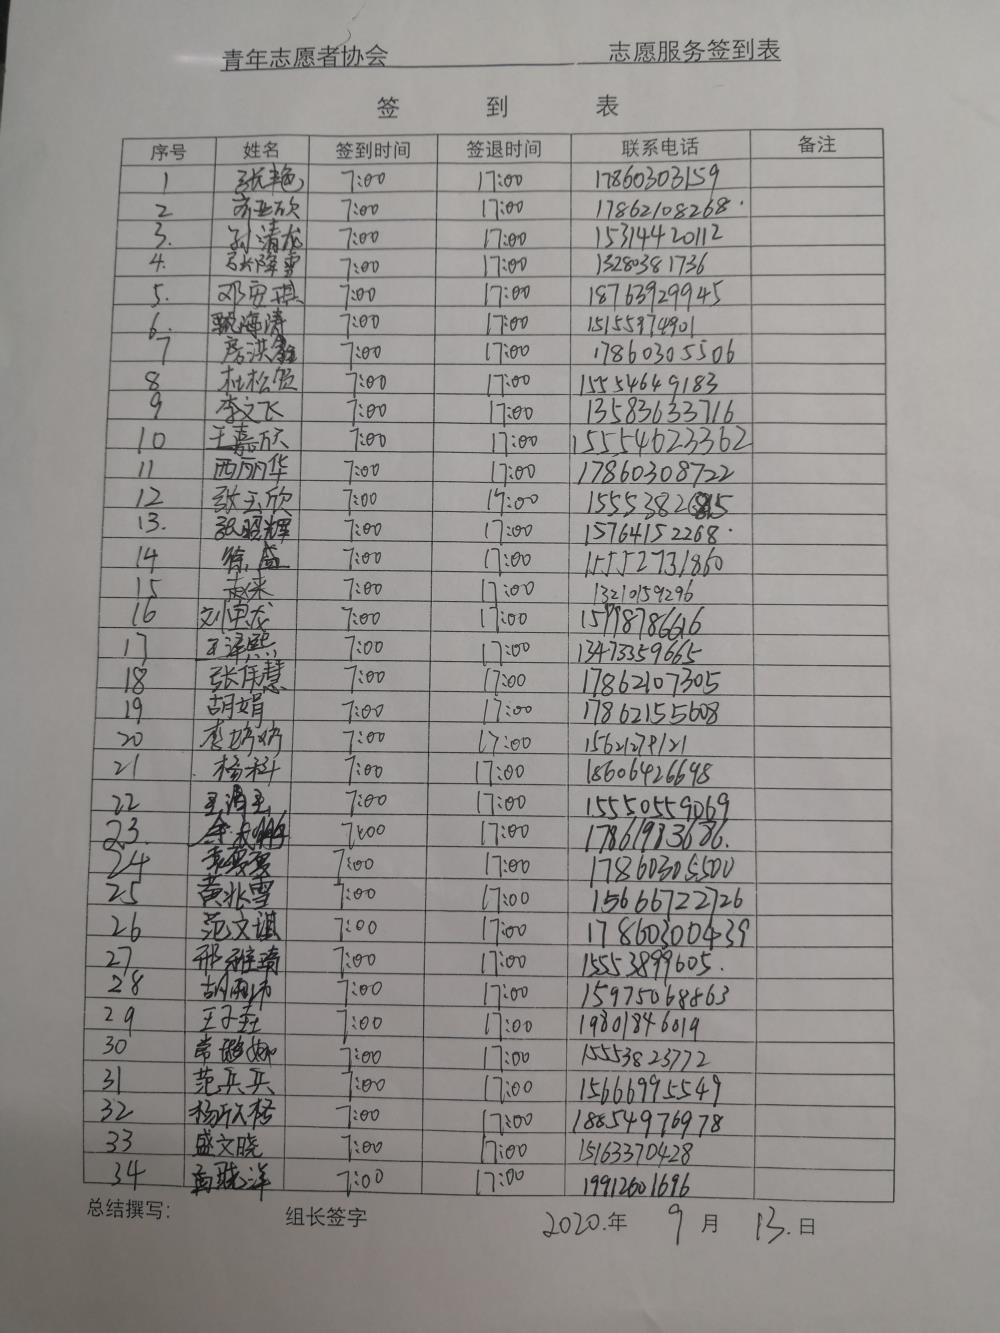 青年志愿者协会 志愿服务签到表
签 到 表
序号 姓名 签到时间 签退时间 联系电话 备注
1 张艳 7:00 17:00 17860303159
2 7:00 17:00 17862108268.
3. 孙清龙 7:00 17:00 15314420112
4. 7:00 17:00 13280381736
5. 邓安琪 7:00 17:00 18763929945
6. 甄海涛 7:00 17:00 15155974901
7 房洪鑫 7:00 17:00 17860305506
8 杜松贺 7:00 17:00 15554649183
9 李文飞 7:00 17:00 13583633716
10 王嘉欣 7:00 17:00 15554623362
11 西丽华 7:00 17:00 17860308722
12 张玉欣 7:00 17:00
13. 张照辉 7:00 17:00 15764152268.
14 徐盛 7:00 17:00 15552731860
15 7:00 17:00 13210159296
16 7:00 17:00 15998786616
17 王泽熙 7:00 17:00 13473359665
18 7:00 17:00 17862107305
19 胡娟 7:00 17:00 17862155608
20 李婷婷 7:00 17:00
21 杨科 7:00 17:00 18606426698
22 7:00 17:00 15550559069
23. 7:00 17:00 17861983686.
24 7:00 17:00 17860305500
25 黄兆雪 7:00 17:00 15666722726
26 范文祺 7:00 17:00 17860300439
27 邢雅琦 7:00 17:00 15553899605.
28 7:00 17:00 15975068863
29 王子垚 7:00 17:00 19801846019
30 7:00 17:00 15553823772
31 范兵兵 7:00 17:00 15666995549
32 杨欣格 7:00 17:00 18854976978
33 盛文晓 7:00 17:00 15163370428
34 7:00 17:00 19912601696
总结撰写： 组长签字 2020.年 9 月 13.日